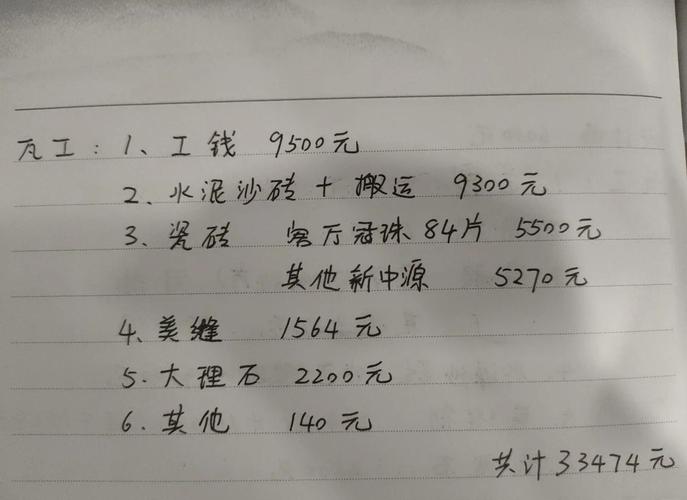 瓦工：1、工钱 9500元
2、水泥沙砖＋搬运 9300元
3、瓷砖 客厅冠珠84片 5500元
其他新中源 5270元
4、美缝 1564元
5、大理石 2200元
6、其他 140元
共计33474元